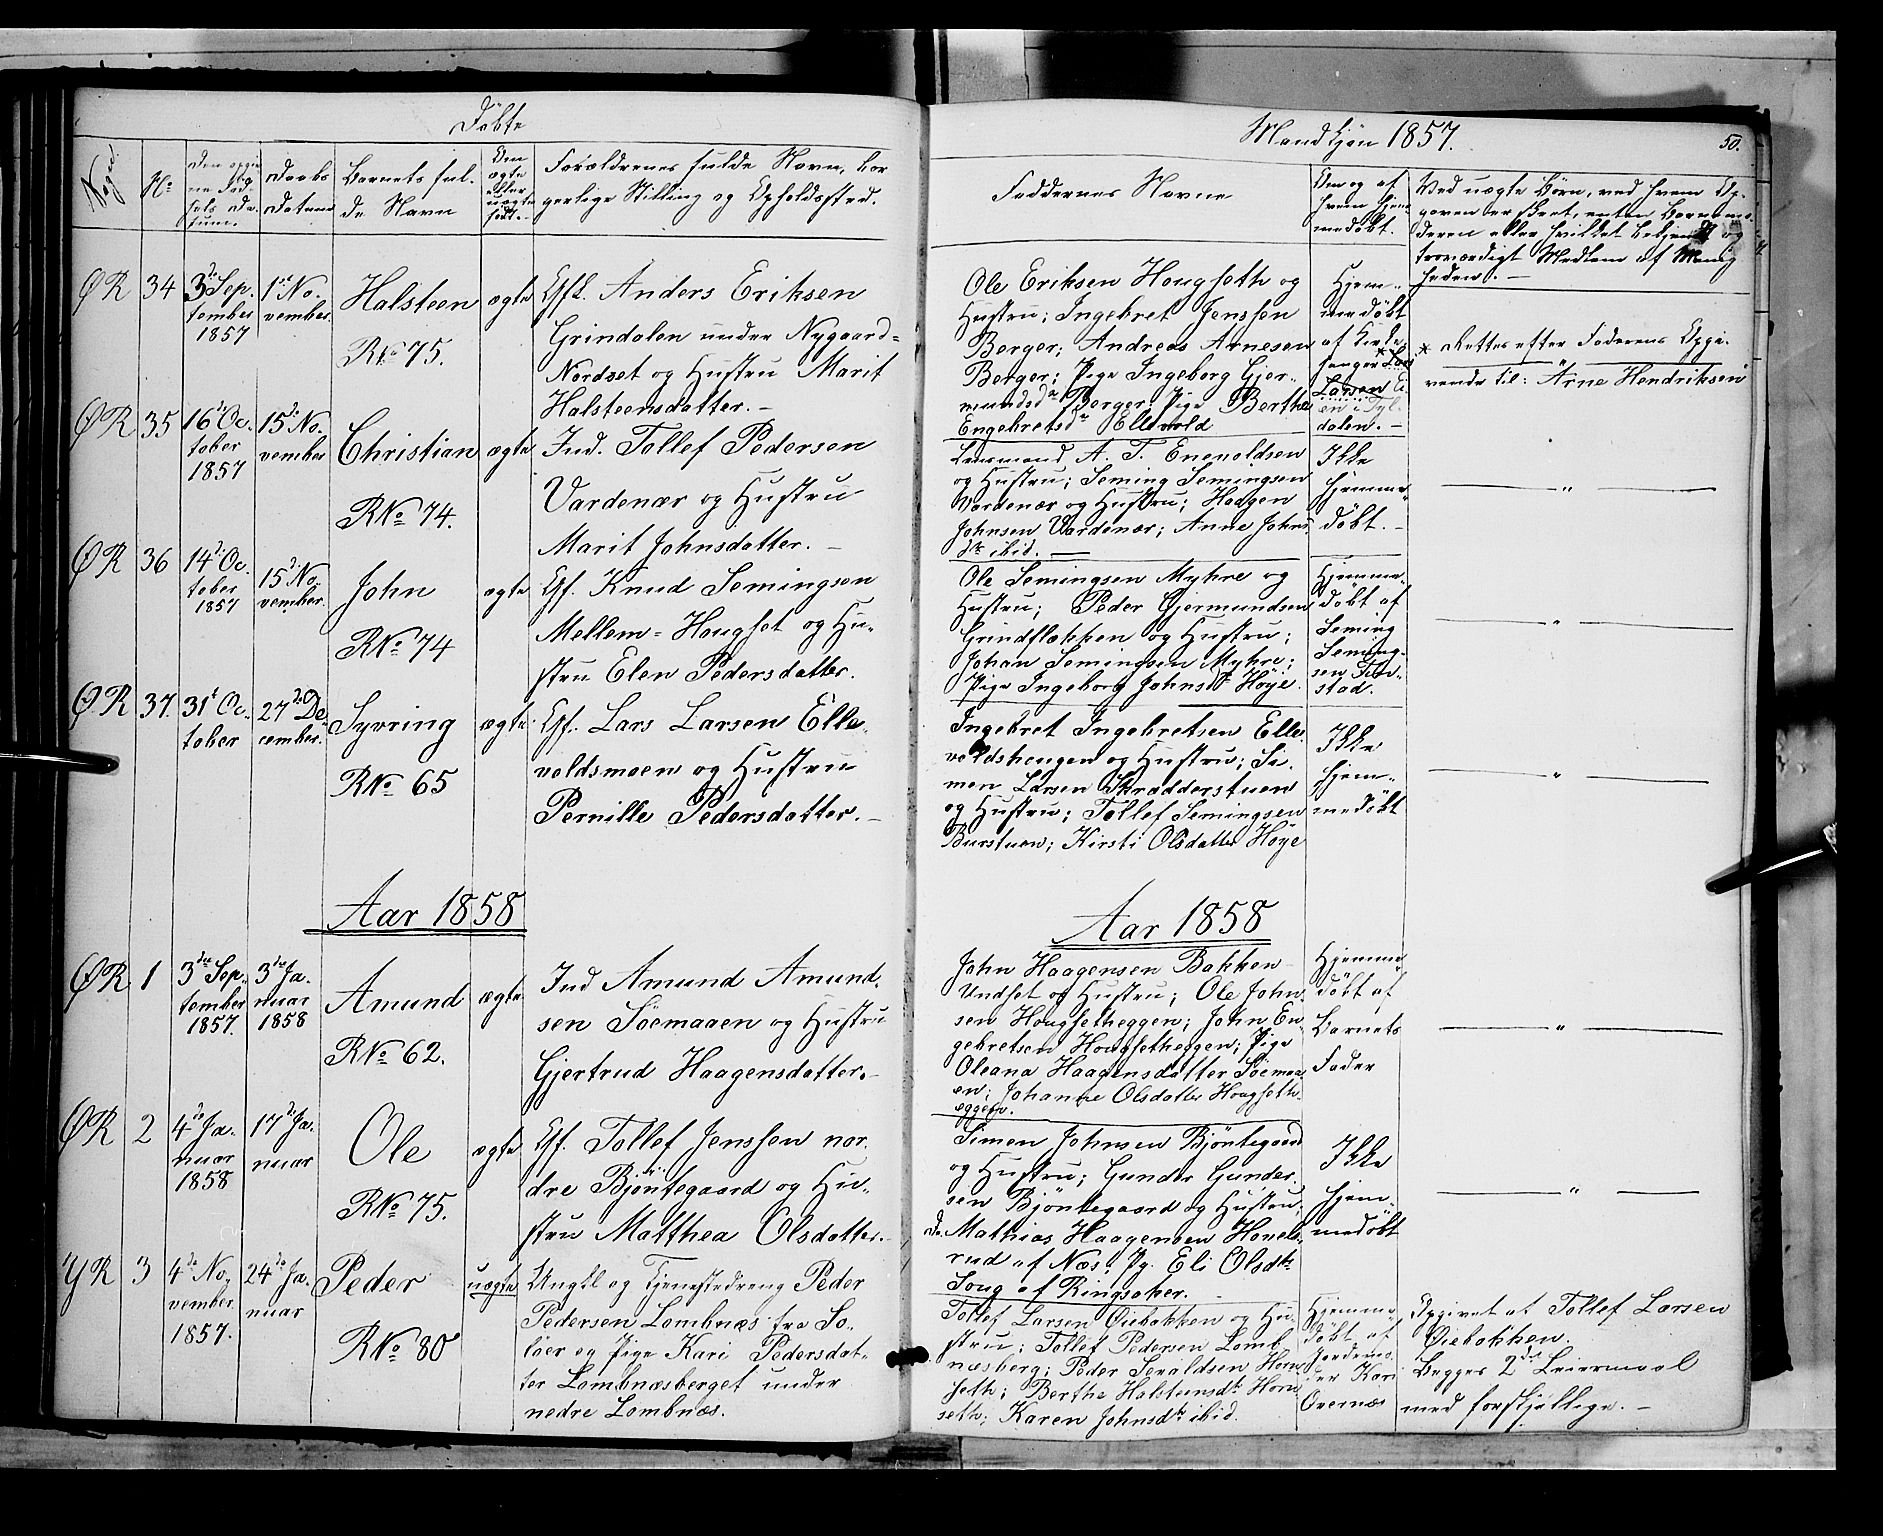 Döbte
Mandkjøn 1857.
50.
No
Den opgiv
ne Fød
sels Da
tum.
Daabs
Datum
Barnets ful-
de Navn
Om
ægte
eller
uægte
født.
Forældrenes fulde Navn, bor
gerlige Stilling og Opholdssted.
Faddernes Navne
Om og af
hvem hjem
medøbt.
Ved uægte Børn, ved hvem Op-
gaven er skeet, enten Barnemo-
deren eller hvilket bekjendt og
troværdigt Medlem af Menig
heden. —
ØR 34
3die Sep.
tember
1857
1ste No-
vember.
Halsteen
RNo 75.
ægte
Gfk. Anders Eriksen
Grindalen under Nygaard=
Nordset og Hustru Marit
Halsteensdatter. —
Ole Eriksen Hougseth og
Hustru; Ingebret Jenssen
Berger; Andreas Arnesen
Berger; Pige Ingeborg Gjer-
mundsdr Berger; Pige Berthe
Engebretsdr Ellevold
Hjem-
medøbt
af Kirke
sanger * Lars
Larsen
i Tyl-
dalen. —
* Rettes efter Faderens Opgi-
vende til: Arne Hendriksen
ØR 35
16de Oc
tober
1857
15de No-
vember
Christian
RNo 74.
ægte
Ind. Tollef Pedersen
Vardenær og Hustru
Marit Johnsdatter. —
Lensmand A. T. Enevoldsen
og Hustru; Seming Semingsen
Vardenær og Hustru; Haagen
Johnsen Vardenær; Anne Johns
dr ibid. —
Ikke
hjemme-
døbt. —
ØR 36
14de Oc.
tober
1857
15de No-
vember.
John
RNo 74
ægte
Gf. Knud Semingsen
Mellem=Hougset og Hu-
stru Elen Pedersdatter.
Ole Semingsen Myhre og
Hustru; Peder Gjermundsen
Grindflækken og Hustru;
Johan Semingsen Myhre;
Pige Ingeborg Johnsdr Høye.
Hjemme-
døbt af
Seming
Seming-
sen Fin-
stad.
ØR 37.
31te Oc-
tober
27de De-
cember.
Syvring
RNo 65
ægte
Gf. Lars Larsen Elle-
voldsmoen og Hustru
Pernille Pedersdatter. —
Ingebret Ingebretsen Elle
voldshaugen og Hustru; Si-
men Larsen Skrædderstuen
og Hustru; Tollef Semingsen
Burstuen; Kirsti Olsdatter Høye
Ikke
hjem-
medøbt
Aar 1858
Aar 1858
ØR 1
3die Sep-
tember
1857.
3die Ja-
nuar
1858
Amund
RNo 62.
ægte
Ind Amund Amund.
sen Söemoen og Hustru
Gjertrud Haagensdatter. —
John Haagensen Bakken
Undset og Hustru; Ole John
sen Hougsetheggen; John En
gebretsen Hougsetheggen; Pige
Oleana Haagensdatter Söemo
en; Johanne Olsdatter Hougseth
eggen.
Hjemme-
døbt af
Barnets
Fader
ØR 2
4de Ja-
nuar
1858
17de Ja-
nuar
Ole
RNo 75.
ægte
Gf. Tollef Jenssen nor.
dre Bjöntegaard og Hu-
stru Matthea Olsdatter. —
Simen Johnsen Bjöntegaard
og Hustru; Gunder Gunder.
sen Bjöntegaard og Hustru;
Mathias Haagensen Hovels-
rud af Næs; Pg. Eli Olsdtr
Song af Ringsaker. —
Ikke
hjem-
medøbt
YR 3
4de No-
vember.
1857.
24de Ja-
nuar
Peder
RNo 80
uægte
Ungkl og Tjenestedreng Peder
Pedersen Lombnæs fra So-
löer og Pige Kari Pedersdat-
ter Lombnæsberget under
nedre Lombnæs.
Tollef Larsen Öiebakken og Hu-
stru; Tollef Pedersen Lomb
næsberg; Peder Seraldsen Horn
seth; Berthe Halsteinsdtr Horn
seth; Karen Johnsdtr ibid.
Hjemme
døbt af
Jordemo-
der Kari
Övernæs
Opgivet af Tollef Larsen
Öiebakken.
Begges 2det Leiermaal
med forskjellige. —